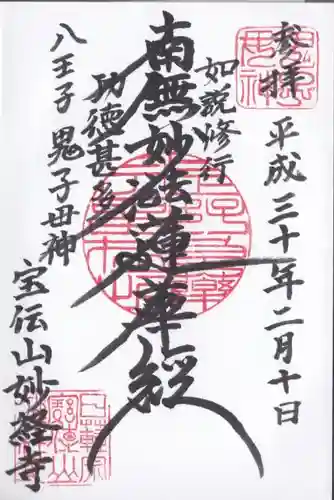 参拝
平成三十年二月十日
如説修行
南無妙法蓮華経
功徳甚多
八王子 鬼子母神
宝伝山妙経寺